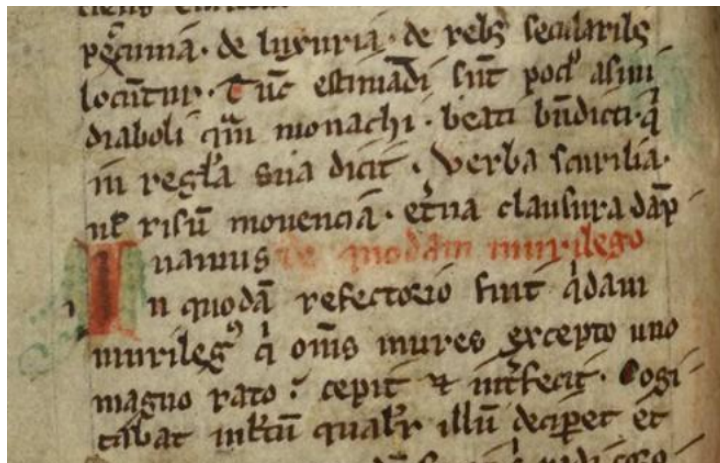 pecunia · de luxuria · de reb secularib
locuntur · Tūc estimādi sūt poci asini
diaboli qm monachi · beati bndicti · q
in regla sua dicit · Verba scurilia ·
ul risū mouencia · etna clausura dāp
namus de quodam murilego
In quodā refectorio fuit qdam
murileg⁹ q oms mures excepto uno
magno rato : cepit ⁊ intfecit · Cogi
tabat mltū qualr illū decipet et